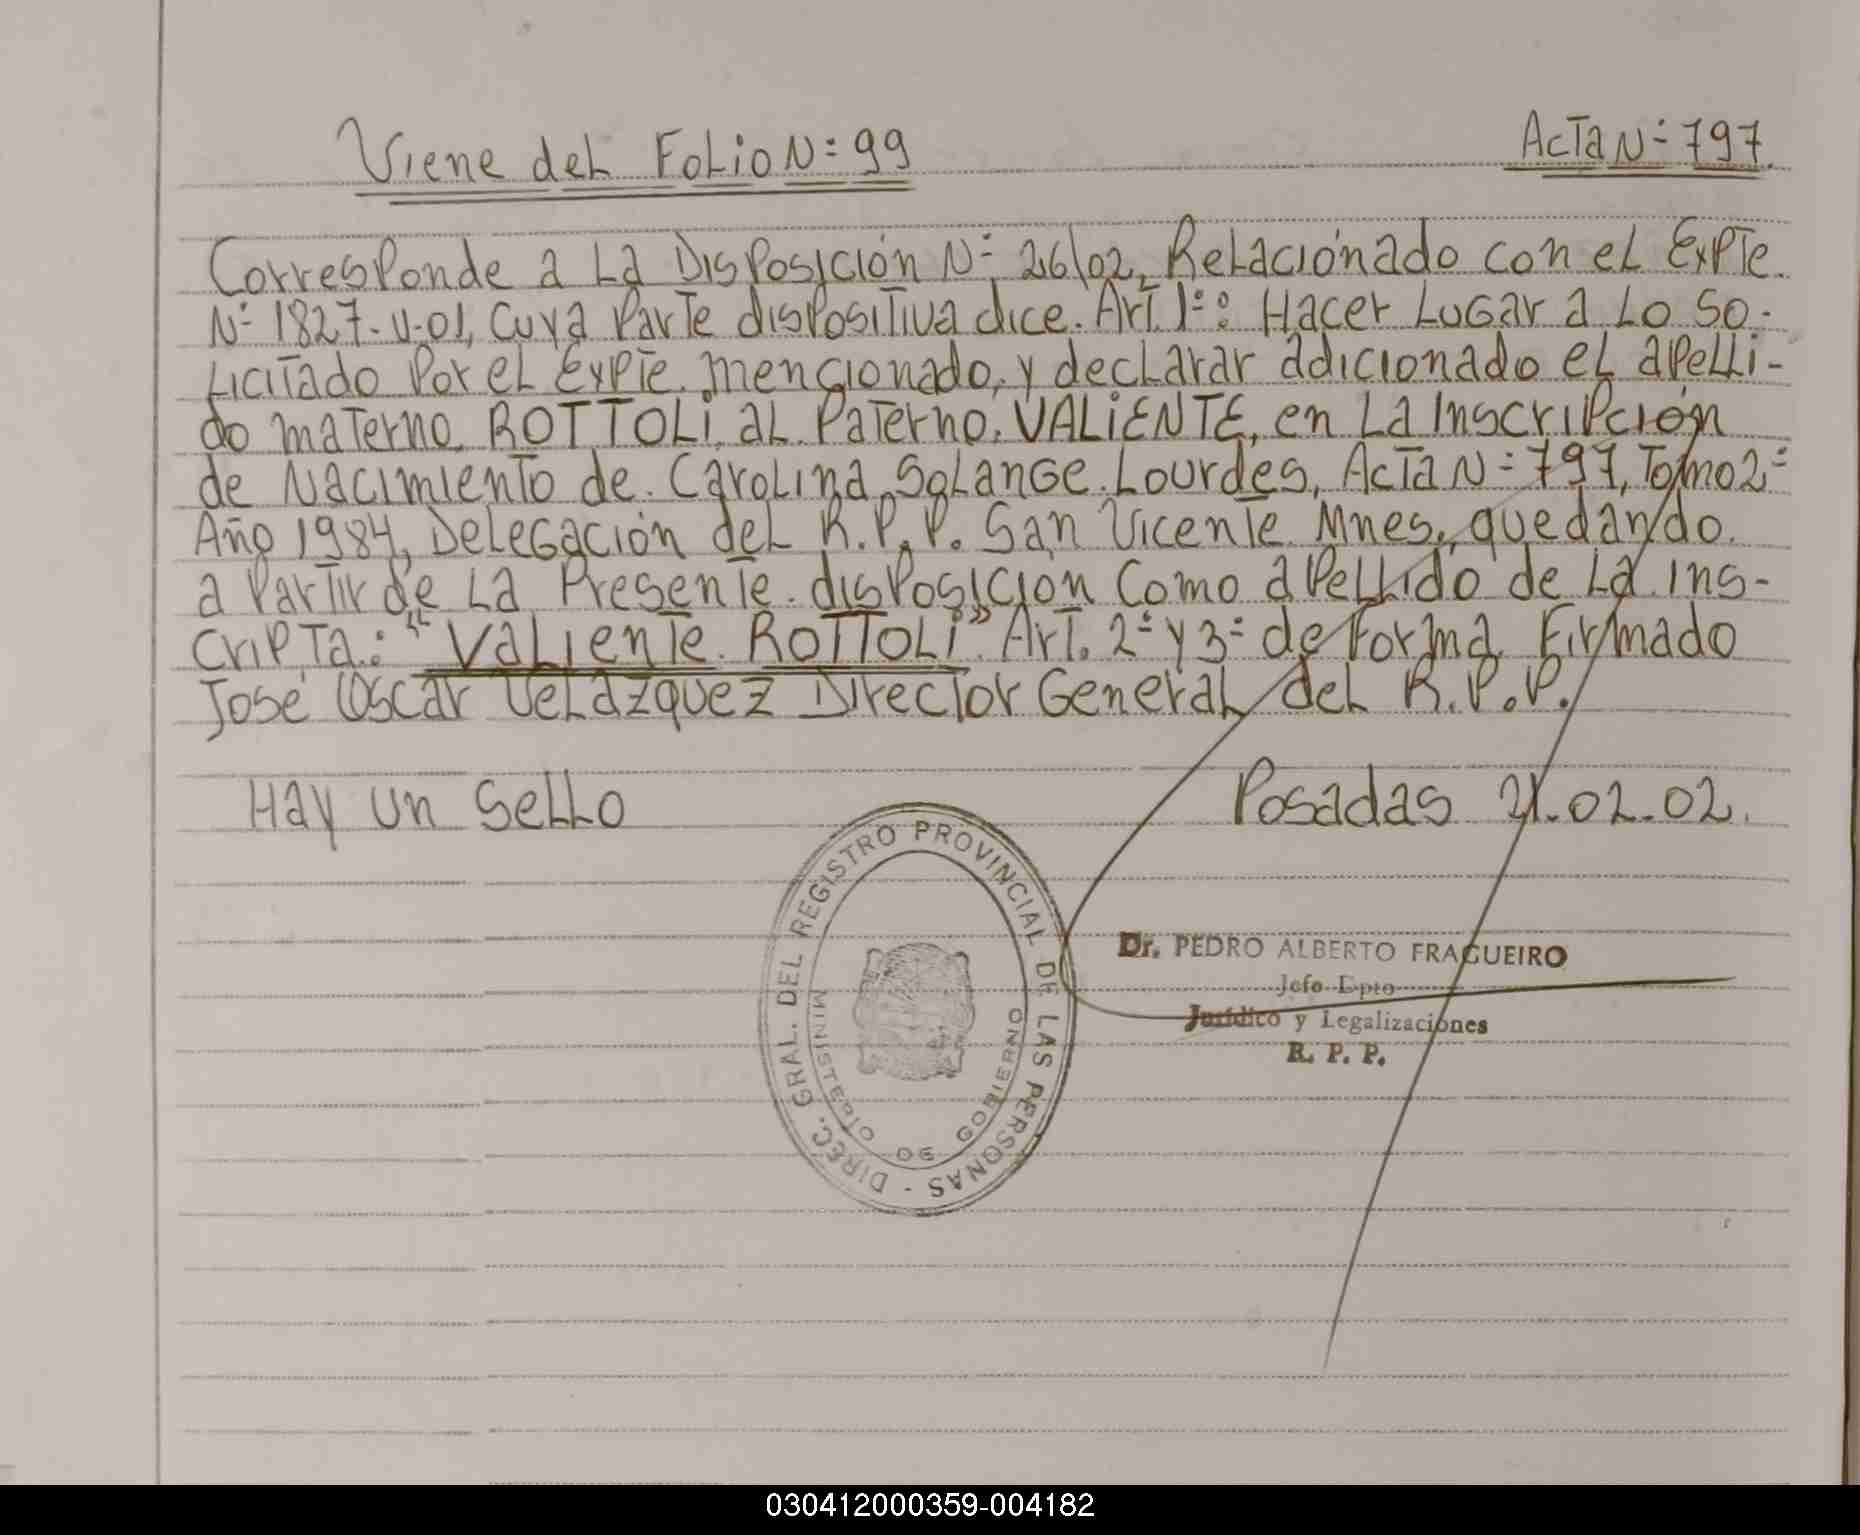 Viene del Folio N= 99
Acta N= 797
Corresponde a la Disposición N= 26/02, Relacionado con el Expte.
N= 1827-V-01, cuya Parte dispositiva dice. Art. 1=: Hacer Lugar a Lo So-
Licitado Por el Expte. mencionado, y declarar adicionado el apelli-
do materno ROTTOLi al Paterno, VALiENTE, en La Inscripción
de Nacimiento de Carolina Solange Lourdes, Acta N=797, Tomo 2=
Año 1984, Delegación del R.P.P. San Vicente Mnes, quedando
a Partir de La Presente disposición Como apellido de La ins-
cripta: "Valiente ROTTOLi" Art. 2= y 3= de Forma Firmado
José Oscar Velazquez Director General del R.P.P.
Hay un Sello
Posadas 21.02.02.
DIREC. GRAL. DEL REGISTRO PROVINCIAL DE LAS PERSONAS -
MINISTERIO DE GOBIERNO
Dr. PEDRO ALBERTO FRAGUEIRO
Jefe Dpto
Jurídico y Legalizaciones
R. P. P.
030412000359-004182